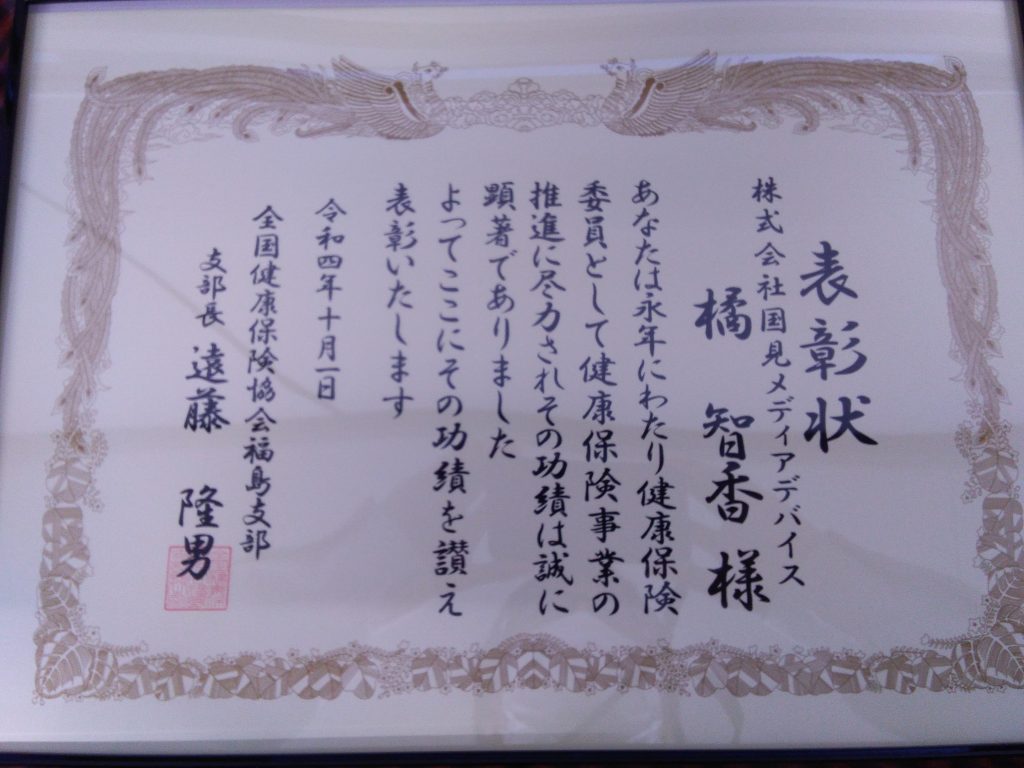 表彰状
株式会社国見メディアデバイス
橘 智香 様
あなたは永年にわたり健康保険
委員として健康保険事業の
推進に尽力されその功績は誠に
顕著でありました
よってここにその功績を讃え
表彰いたします
令和四年十月一日
全国健康保険協会福島支部
支部長 遠藤 隆男